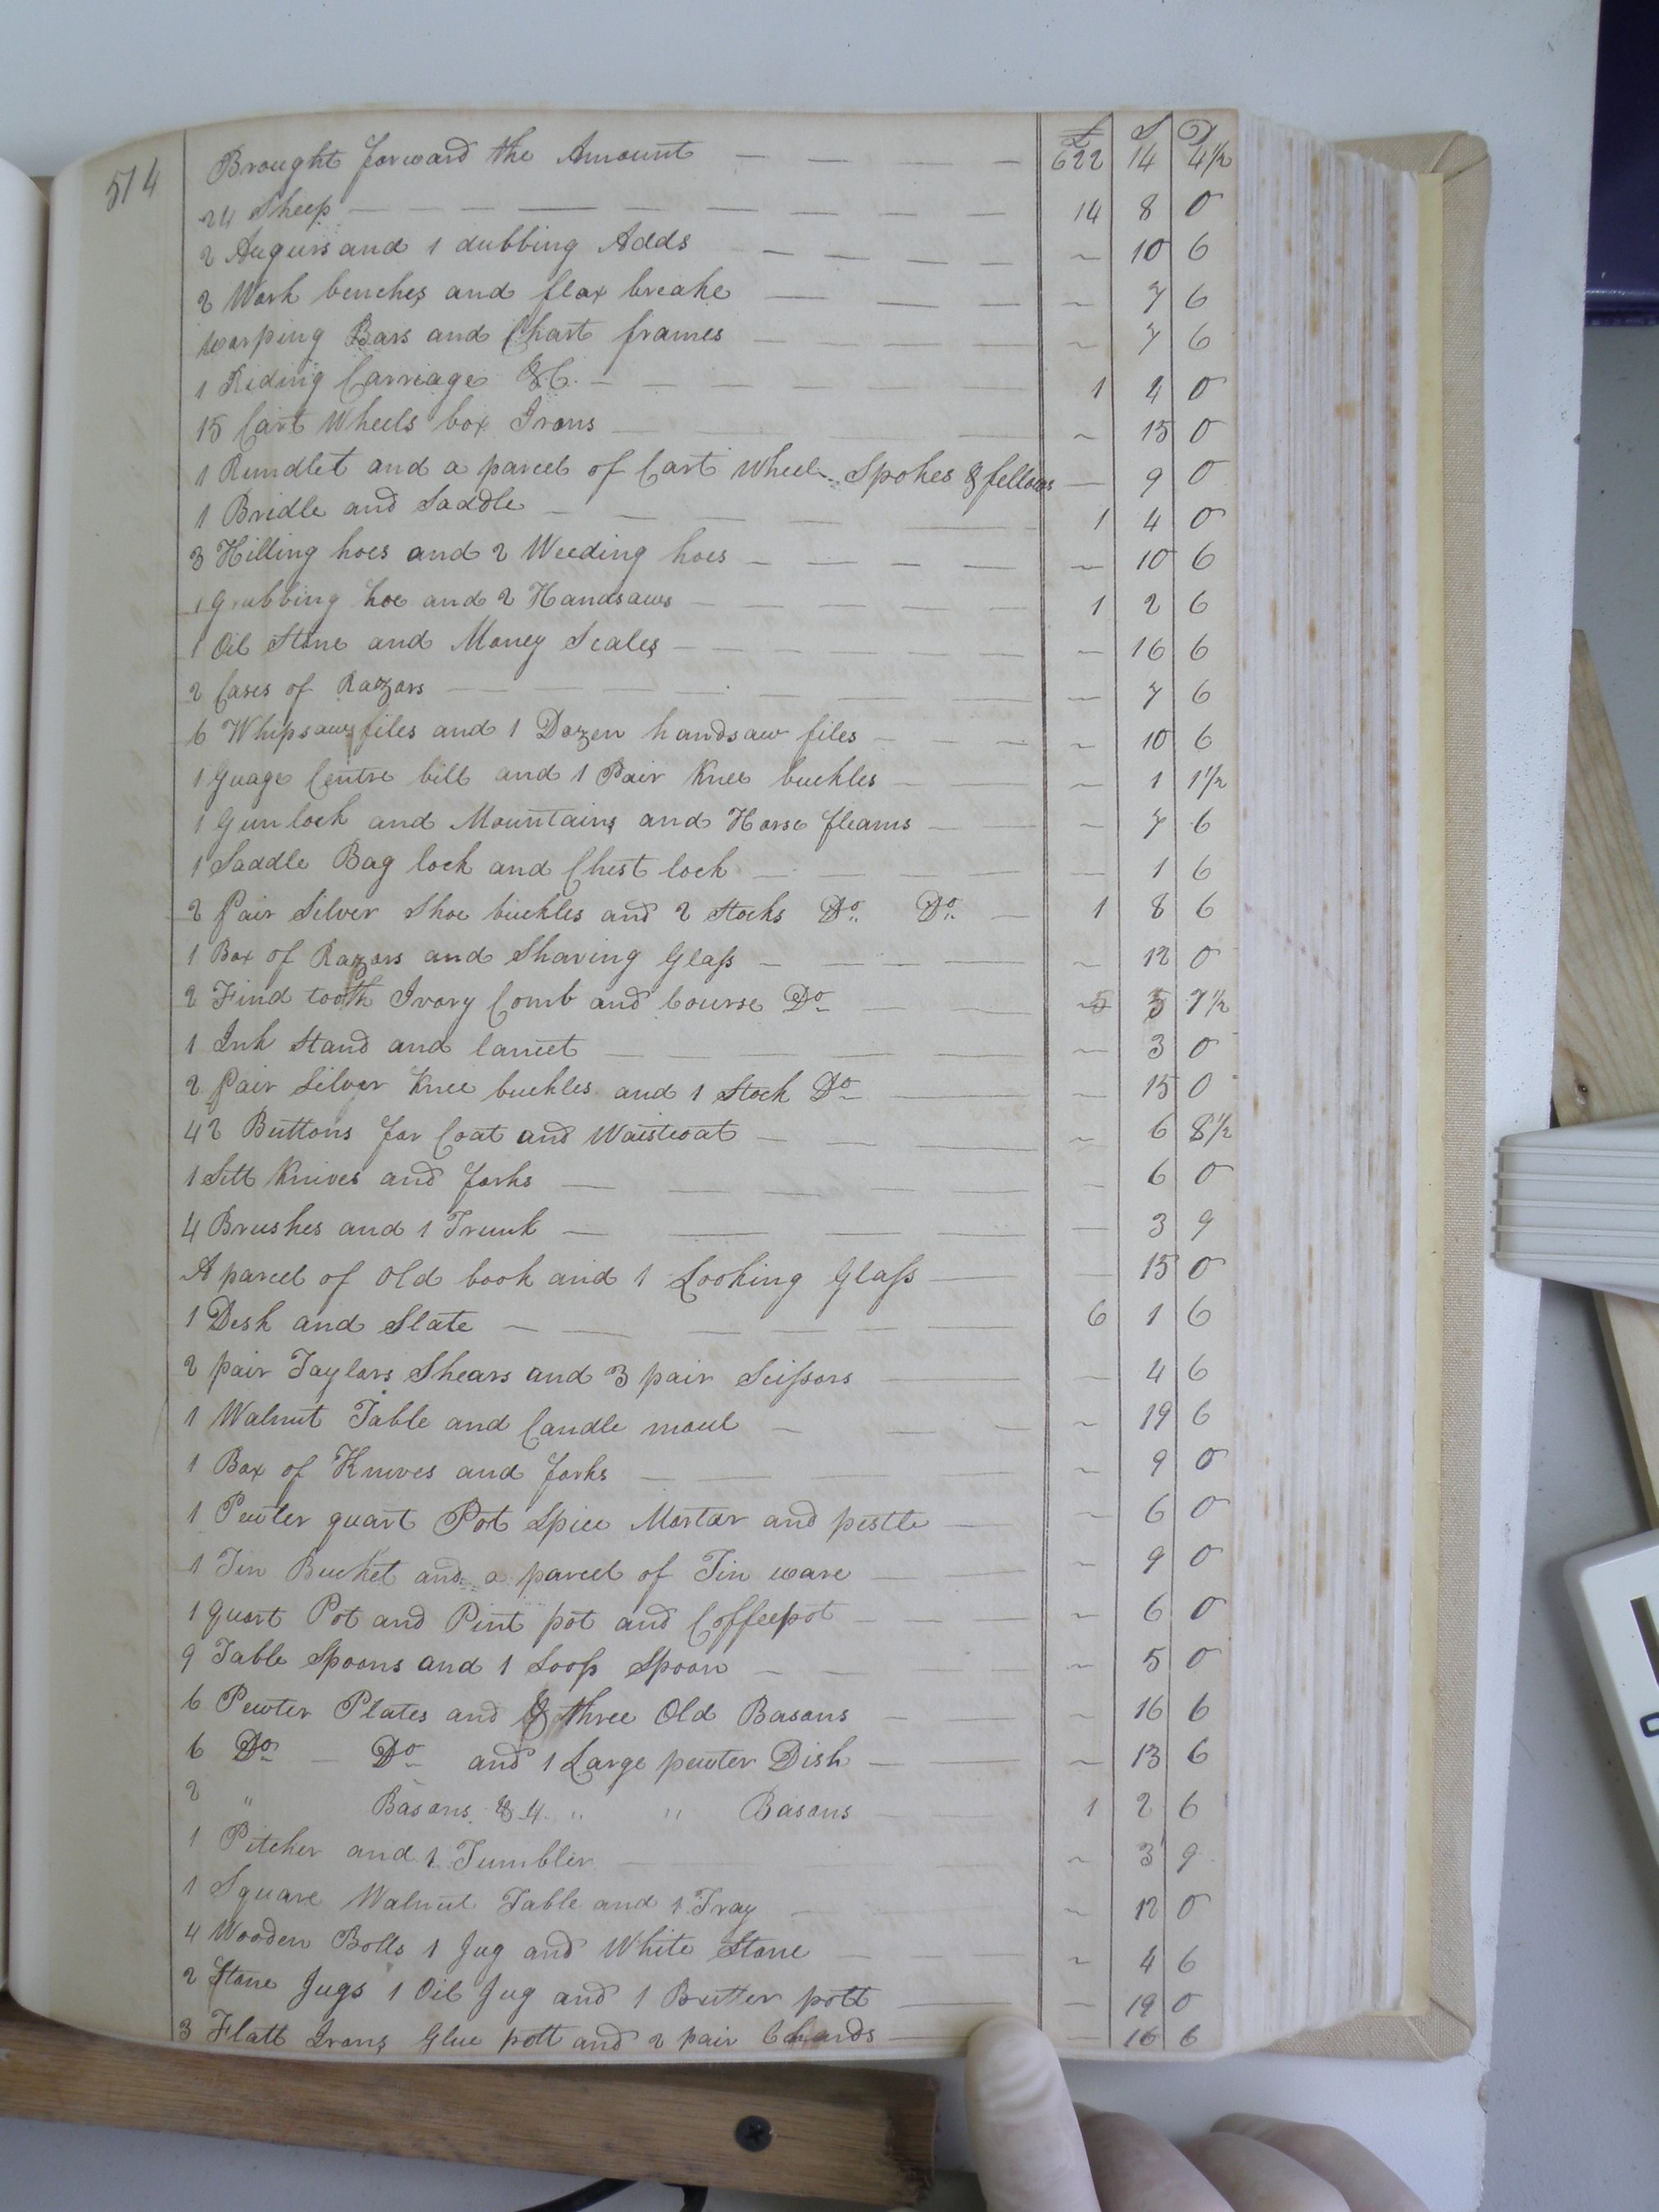 514
£ S D
Brought forward the Amount — — — — 622 14 4½
24 Sheep — — — — — — — — 14 8 0
2 Augurs and 1 dubbing Adds — — — — ~ 10 6
2 Work benches and flax breake — — — ~ 7 6
warping Bars and Chart frames — — — — ~ 7 6
1 Riding Carriage &C. — — — — — 1 4 0
15 Cart Wheels box Irons — — — — ~ 15 0
1 Rundlet and a parcel of Cart Wheel Spokes & fellows — 9 0
1 Bridle and Saddle — — — — — 1 4 0
3 Hilling hoes and 2 Weeding hoes — — — — ~ 10 6
1 Grubbing hoe and 2 Handsaws — — — — — 1 2 6
1 Oil Stone and Money Scales — — — — — — 16 6
2 Cases of Razors — — — — — — 7 6
6 Whipsaw files and 1 Dozen handsaw files — — — ~ 10 6
1 Guage Centre bill and 1 Pair Knee buckles — — ~ 1 1½
1 Gun lock and Mountains and Horse fleams — — ~ 7 6
1 Saddle Bag lock and Chest lock — — — — — 1 6
2 Pair Silver Shoe buckles and 2 Stocks Do. Do. — 1 8 6
1 Box of Razors and Shaving Glass — — — — ~ 12 0
2 Find tooth Ivory Comb and Course Do — — ~ 5 7½
1 Ink Stand and lancet — — — — — ~ 3 0
2 Pair Silver Knee buckles and 1 Stock Do — — ~ 15 0
42 Buttons for Coat and Waistcoat — — — ~ 6 8½
1 Sett Knives and forks — — — — — 6 0
4 Brushes and 1 Trunk — — — — — 3 9
A parcel of old book and 1 Looking Glass — — — 15 0
1 Desk and Slate — — — — — — 6 1 6
2 pair Taylors Shears and 3 pair Scissors — — — 4 6
1 Walnut Table and Candle moul — — — ~ 19 6
1 Box of Knives and forks — — ~ 9 0
1 Pewter quart Pot Spice Mortar and pestle — — ~ 6 0
1 Tin Bucket and a parcel of Tin ware — — ~ 9 0
1 quart Pot and Pint pot and Coffeepot — — — ~ 6 0
9 Table Spoons and 1 Soop Spoon — — — — ~ 5 0
6 Pewter Plates and three Old Basons — — ~ 16 6
6 Do — Do and 1 Large pewter Dish — — ~ 13 6
2 " Basons & 4 " " Basons — — 1 2 6
1 Pitcher and 1 Tumbler — — ~ 3 9
1 Square Walnut Table and 1 Tray — — ~ 12 0
4 Wooden Bolls 1 Jug and White Stone — — ~ 4 6
2 Stone Jugs 1 Oil Jug and 1 Butter pott — — 19 0
3 Flatt Irons Glue pott and 2 pair Chards — — 16 6